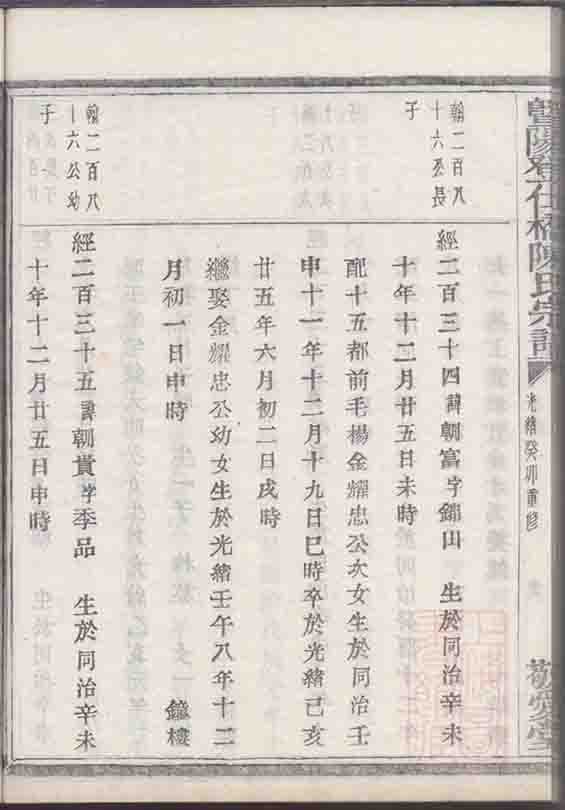 暨陽登仕橋陳氏宗譜
光緒癸卯重修
敬愛堂
翰二百八
十六公長
子
經二百三十四諱朝富字錦山 生於同治辛未
十年十二月廿五日未時
配十五都前毛楊金耀忠公次女生於同治壬
申十一年十二月十九日巳時卒於光緒己亥
廿五年六月初二日戌時
繼娶金耀忠公幼女生於光緒壬午八年十二
月初一日申時 鐘樓
翰二百八
十六公幼
子
經二百三十五諱朝貴字季品 生於同治辛未
十年十二月廿五日申時